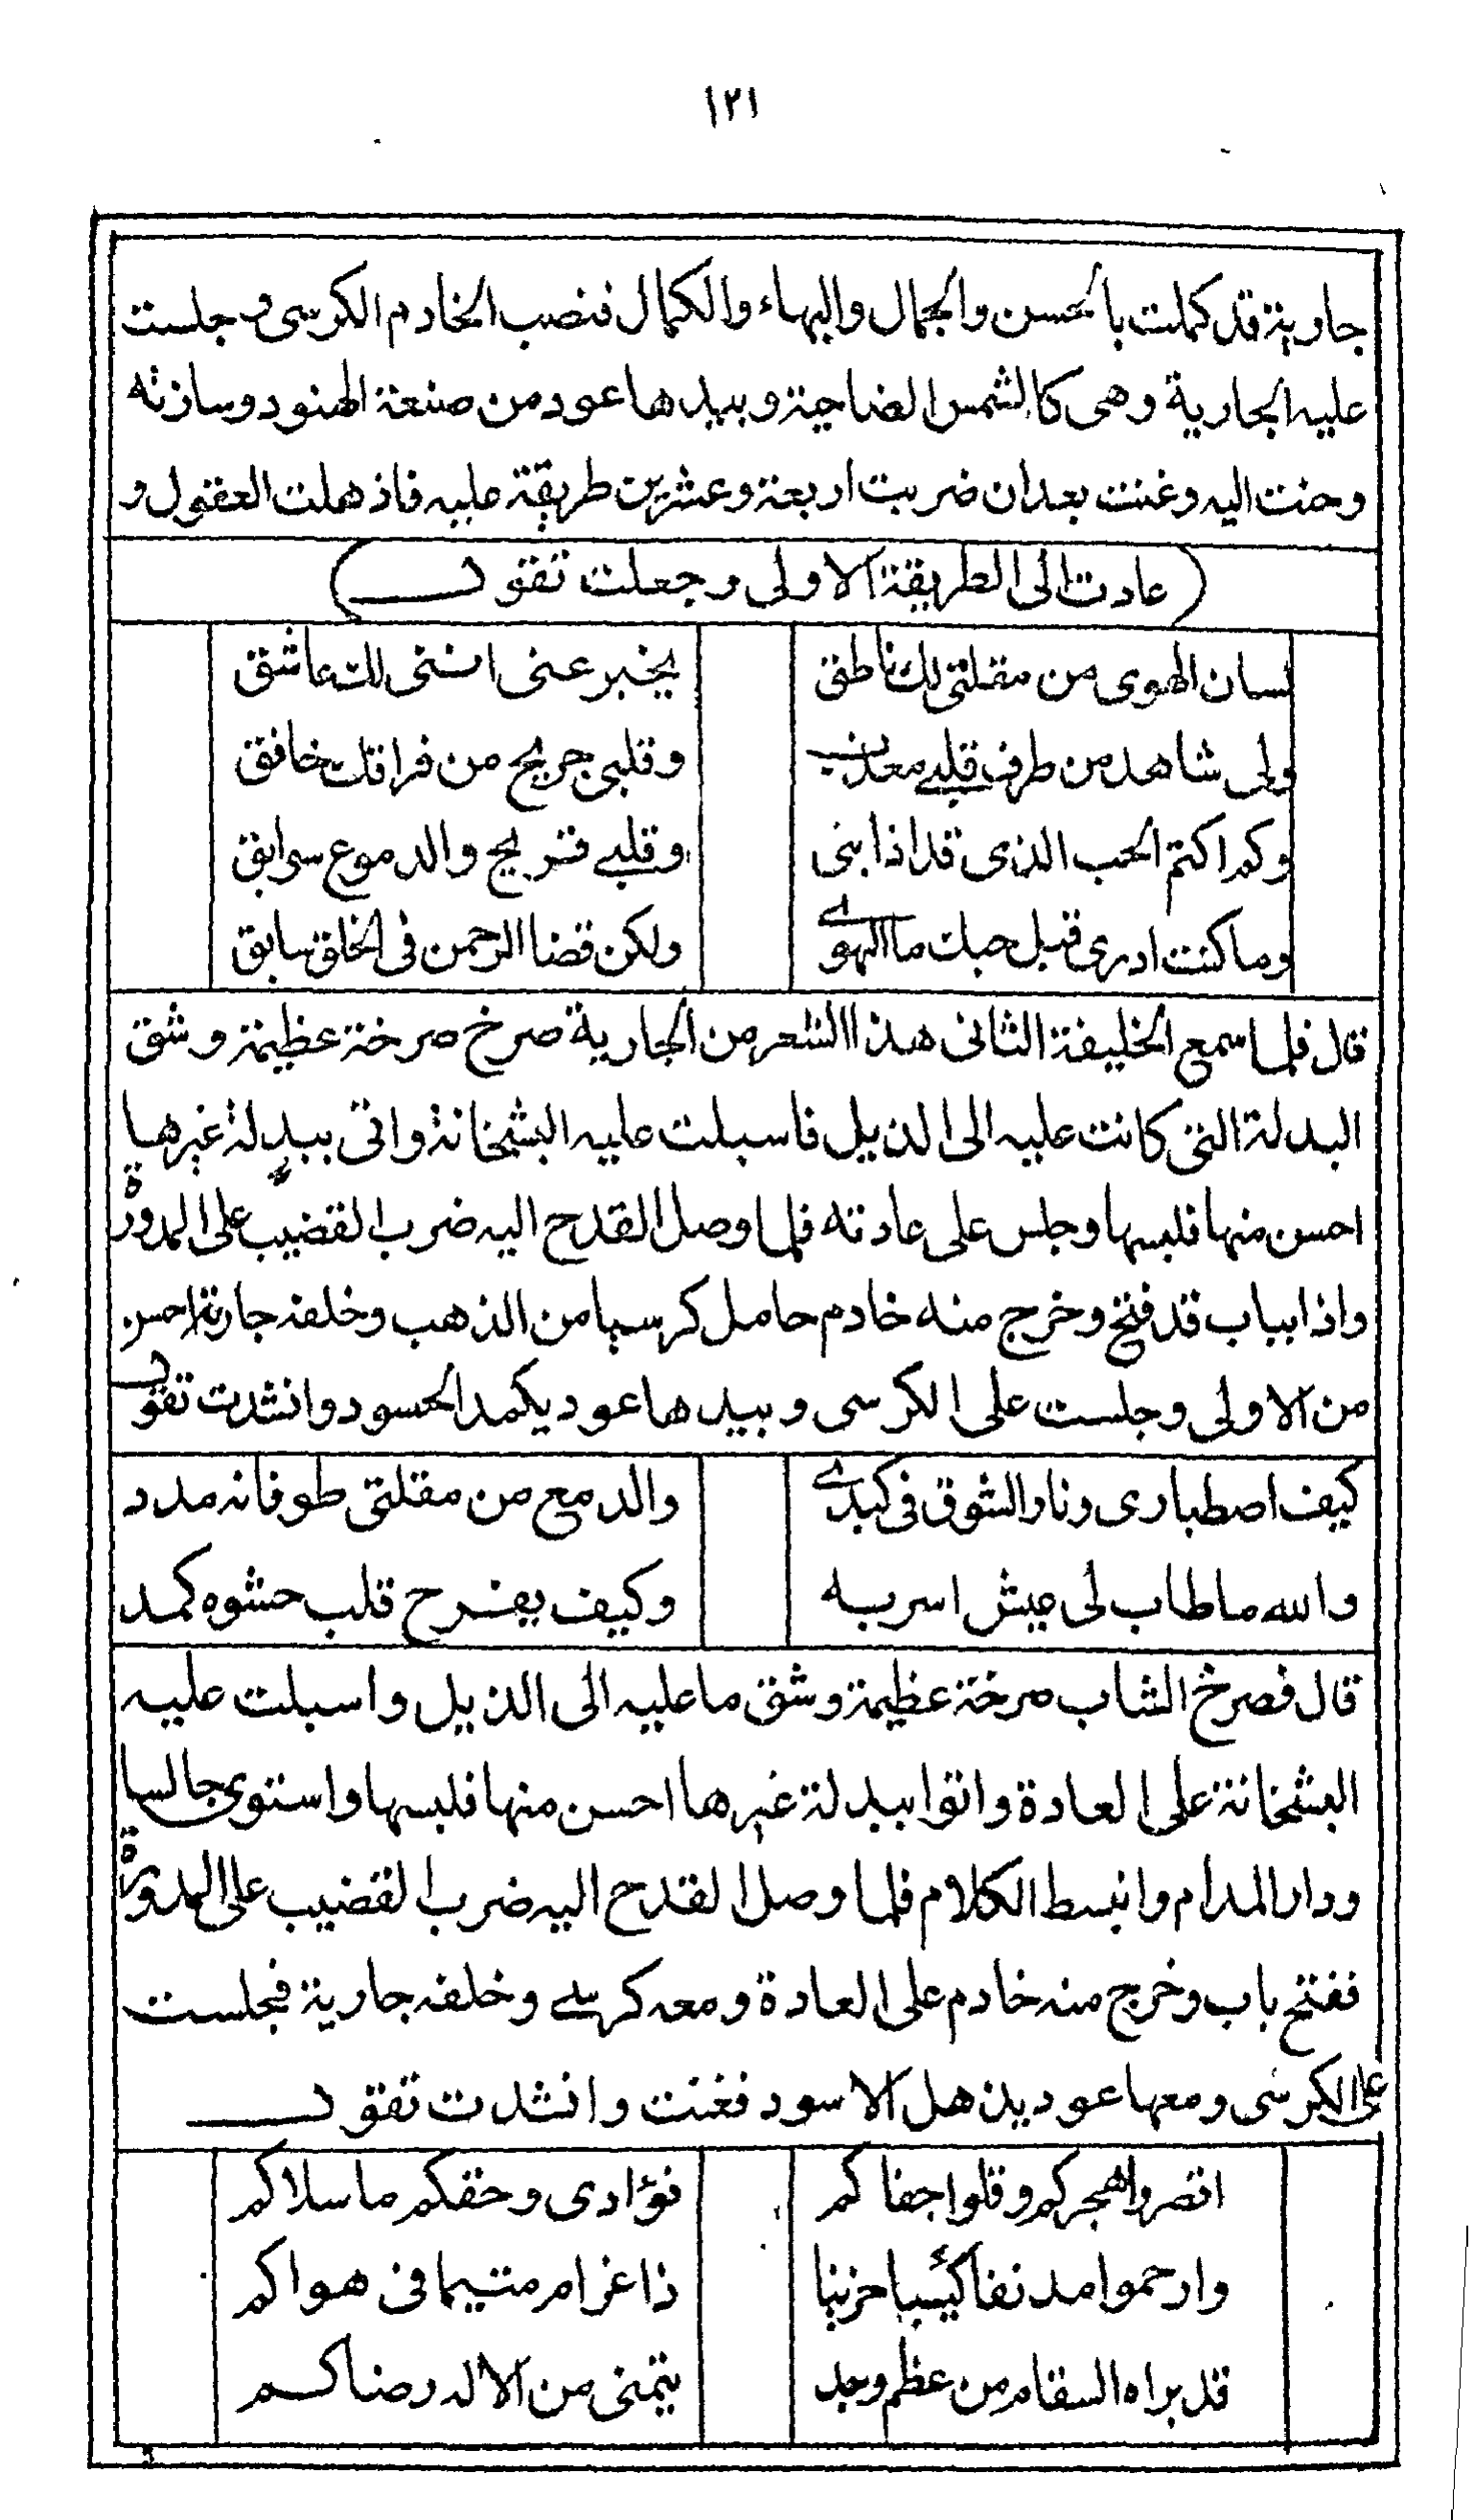 ١٢١
جارية قد كملت بالحسن والجمال والبهاء والكمال فنصب الخادم الكرسي وجلست
عليه الجارية وهى كالشمس الضاحية وبيدها عود من صنعة الهنود وسازته
وحنت اليه وغنت بعد ان ضربت اربعة وعشرين طريقة عليه فاذهلت العقول و
(عادت الى الطريقة الاولى وجعلت تقول)
لسان الهوى من مقلتى لك ناطق يخبر عنى اننى لك عاشق
ولى شاهد من طرف قلبے معذب وقلبى جريح من فراقك خافق
وكم اكتم الحب الذى قد اذابنى وقلبے قريح والدموع سوابق
وما كنت ادرى قبل حبك ما الهوے ولكن قضا الرحمن فى الخلق سابق
قال فلما سمع الخليفة الثانى هذا الشعر من الجارية صرخ صرخة عظيمة وشق
البدلة التى كانت عليه الى الذيل فاسبلت عليه البشخانة واتى ببدلة غيرها
احسن منها فلبسها وجلس على عادته فلما وصل القدح اليه ضرب القضيب على المدورة
واذا بباب قد فتح وخرج منه خادم حامل كرسيا من الذهب وخلفه جارية احسن
من الاولى وجلست على الكرسى وبيدها عود يكمد الحسود وانشدت تقول
كيف اصطبارى ونار الشوق فى كبدے والدمع من مقلتى طوفانه مدد
والله ما طاب لى عيش اسر به وكيف يفرح قلب حشوه كمد
قال فصرخ الشاب صرخة عظيمة وشق ما عليه الى الذيل واسبلت عليه
البشخانة على العادة واتوا ببدلة غيرها احسن منها فلبسها واستوى جالسا
ودار المدام وانبسط الكلام فلما وصل القدح اليه ضرب القضيب على المدورة
ففتح باب وخرج منه خادم على العادة ومعه كرسے وخلفه جارية فجلست
على الكرسى ومعها عود يذهل الاسود فغنت وانشدت تقول
اقصروا هجركم وقلوا جفاكم فؤادى وحقكم ما سلاكم
وارحموا مدنفا كئيبا حزينا ذا غرام متيما فى هواكم
قد براه السقام من عظم وجد يتمنى من الاله رضاكم